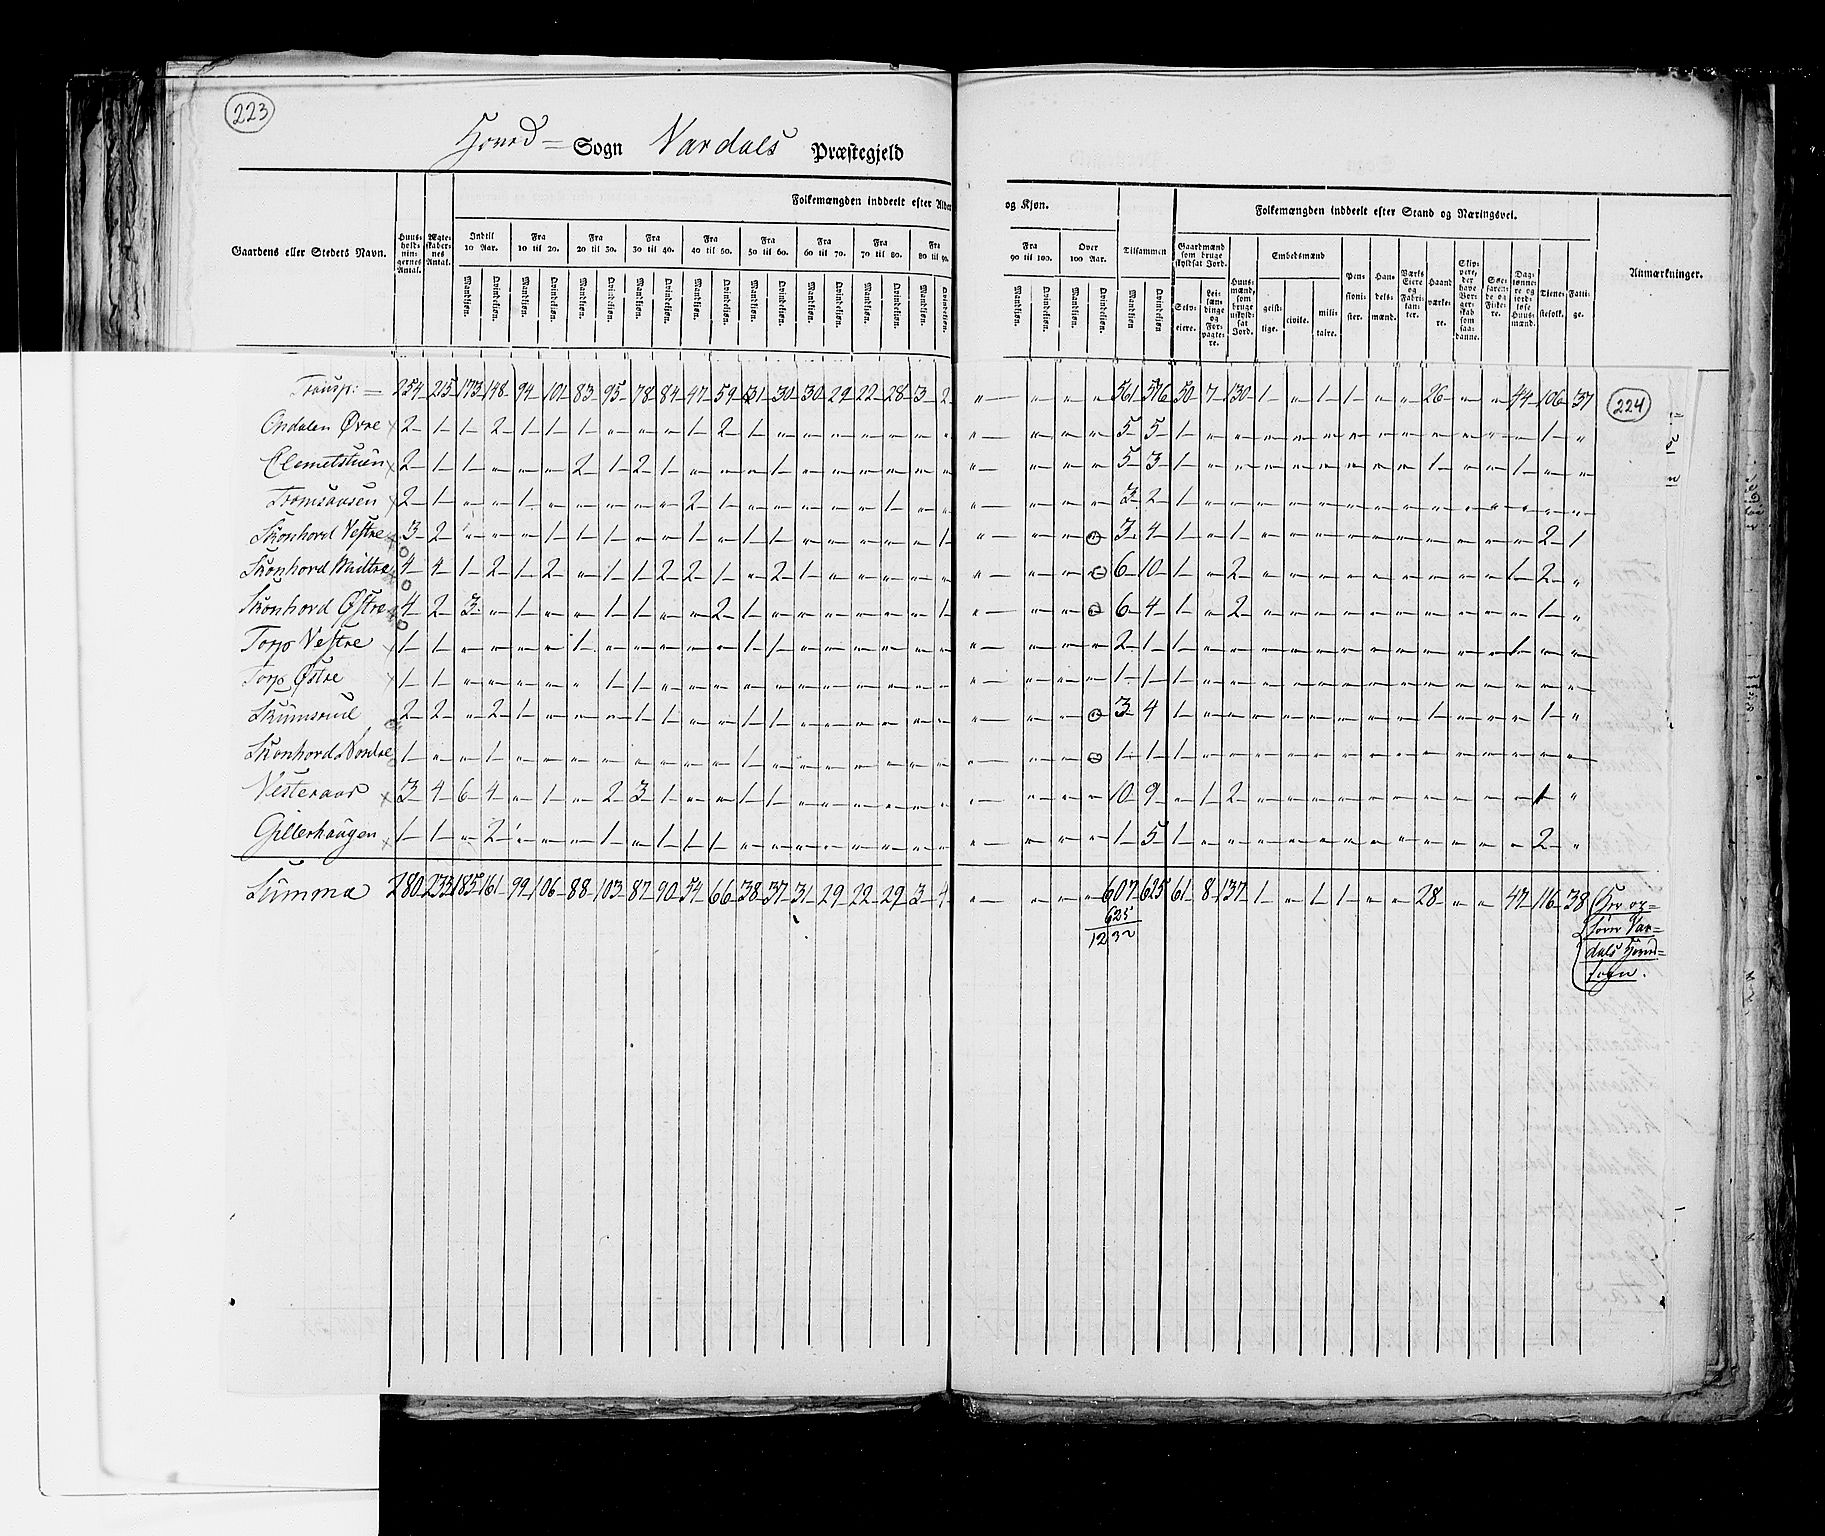 223
Hound = Sogn Vardals Præstegjeld
Gaardens eller Stedets Navn.
Huusholdningernes Antal.
Ægteskabernes Antal.
Folkemængden inddeelt efter Alder og Kjøn.
Indtil 10 Aar. Fra 10 til 20. Fra 20 til 30. Fra 30 til 40. Fra 40 til 50. Fra 50 til 60. Fra 60 til 70. Fra 70 til 80. Fra 80 til 90. Fra 90 til 100. Over 100 Aar. Tilsammen
Mandkjøn. Qvindekjøn.
Folkemængden inddeelt efter Stand og Næringsvei.
Gaardmænd som bruge skyldsat Jord.
Selveiere. Leilændinge og Forpagtere.
Huusmænd, som bruge uskyldsat Jord.
Embedsmænd
geistlige. civile. militaire.
Pensionister. Handelsmænd. Værks Eiere og Fabrikanter. Haandværkere.
Daglønnere og jordløse Huusmænd. Tjenestefolk. Fattige.
Anmærkninger.
Transp: = 254 215 173 148 94 101 83 95 78 84 47 59 31 30 30 29 22 28 3 2 " " " " 561 576 50 7 130 1 " 1 1 " " 26 " " 44 106 37
224
Ondalen Øvre 2 1 1 2 1 1 1 1 " " 1 2 1 " " " " " " " " " " " 5 5 1 " " " " " " " " " " " " 1 "
Clemetstuen 2 1 1 " " " 2 1 2 1 " " " 1 " " " " " " " " " " 5 3 1 " " " " " " " " 1 " " 1 " "
Tomsaasen 2 1 " " 1 " " " " " 2 1 " " " " " 1 " " " " " " 3 2 1 " " " " " " " " " " " " " "
Skonhord Vestre 3 2 " " " 1 1 1 1 " 1 " 1 1 " " " " " 1 " " " " 3 4 1 " 1 " " " " " " " " " " 2 1
Skonhord Midtre 4 4 1 2 1 2 " 1 1 2 2 1 " 2 1 " " " " " " " " " 6 10 1 " 2 " " " " " " " " " 1 2 "
Skonhord Østre 4 2 3 " 1 " " 1 1 " " 2 1 " " " " " " 1 " " " " 6 4 1 " 2 " " " " " " " " " " 1 "
Torp Vestre 1 1 " " " " 1 " " " " " 1 1 " " " " " " " " " " 2 1 1 " " " " " " " " " " " 1 " "
Torp Østre 1 1 " " " " " 1 1 " " " " " " " " " " " " " " " 1 1 1 " " " " " " " " " " " " " "
Skumsrud 2 2 " 2 1 " " " 1 1 " " 1 1 " " " " " " " " " " 3 4 1 " " " " " " " " 1 " " " 1 "
Skonhord Nordre 1 " " 1 " " " " " " " " 1 " " " " " " " " " " " 1 1 1 " " " " " " " " " " " " " "
Vesteraas 3 4 6 4 " 1 " 2 3 1 " " 1 1 " " " " " " " " " " 10 9 " 1 2 " " " " " " " " " " 1 "
Gillerhaugen 1 1 " 2 " " " 1 " 1 1 1 " " " " " " " " " " " " 1 5 1 " " " " " " " " " " " " 2 "
Summa 280 233 185 161 99 106 88 103 87 90 54 66 38 37 31 29 22 29 3 4 " " " " 607 625 61 8 137 1 " 1 1 " " 28 " " 47 116 38
625
1232
Var=
dals Hound=
sogn.